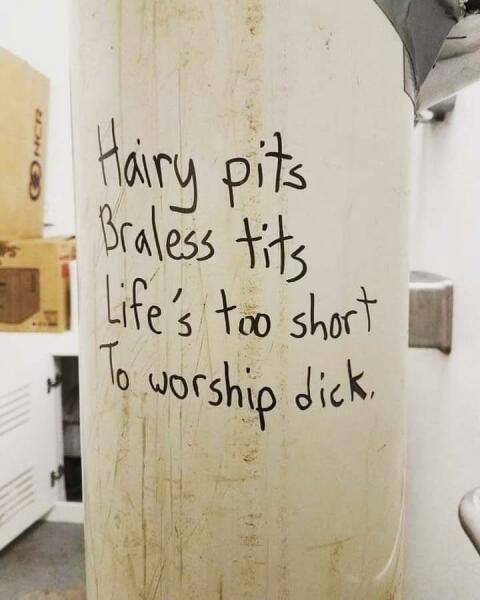 NCR
Hairy pits
Braless tits
Life's too short
To worship dick.